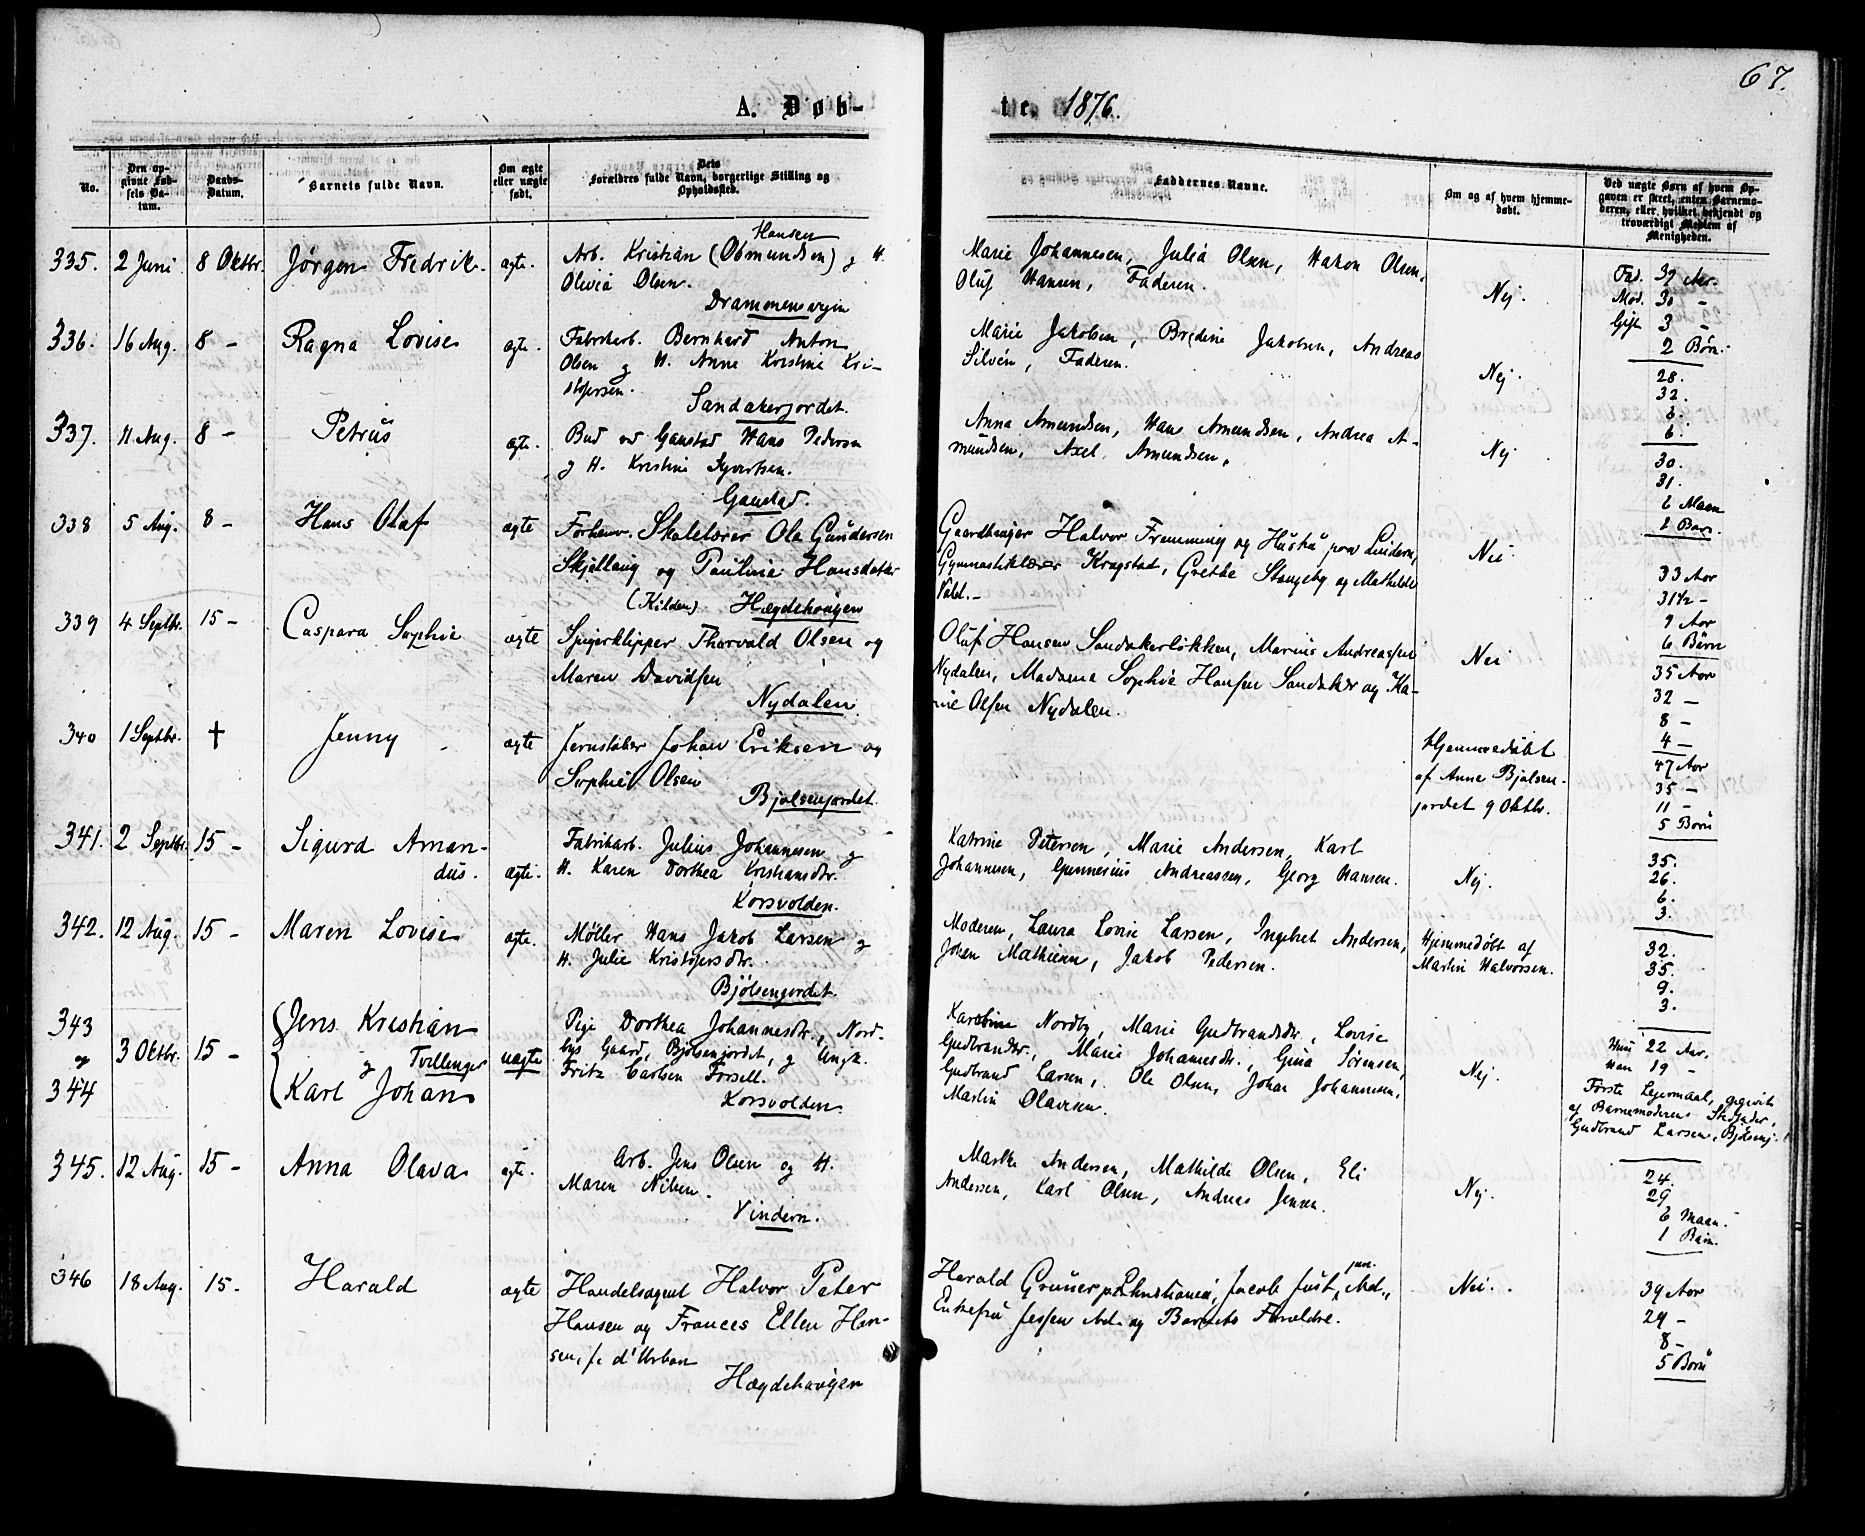 67.
A. Døb-
te. 1876.
No.
Den opgivne Fødsels Datum.
Daabs-Datum.
Barnets fulde Navn.
Om ægte eller uægte født.
Dets Forældres fulde Navn, borgerlige Stilling og Opholdssted.
Faddernes Navne.
Om og af hvem hjemmedøbt.
Ved uægte Børn af hvem Opgaven er skeet, enten Barnemoderen, eller hvilket bekjendt og troværdigt Medlem af Menigheden.
335. 2 Juni 8 Oktbr. Jørgen Fredrik. ægte.
Hansen
Arb. Kristian (Osmundsen) og H.
Olivia Olsen.
Drammensvejen
Marie Johannesen, Julia Olsen, Hakon Olsen,
Oluf Hansen, Faderen.
Nej.
Fad. 39 Aar.
Mod. 30 -
Gift 3 -
2 Børn.
336. 16 Aug. 8 - Ragna Lovise ægte.
Fabrikarb. Bernhard Anton
Olsen og H. Anne Kristine Kri-
stofersen.
Sandakerjordet.
Marie Jakobsen, Bredine Jakobsen, Andreas
Silvén, Faderen.
Nej.
28.
32.
6.
337. 11 Aug. 8 - Petrus ægte.
Bud ved Gaustad Hans Pedersen
og H. Kristine Syvertsen.
Gaustad.
Anna Amundsen, Hans Amundsen, Andrea A-
mundsen, Axel Amundsen.
Nej
30.
31.
6 Maan
1 Barn.
338 5 Aug. 8 - Hans Olaf ægte
Forhenv. Skolelærer Ole Gundersen
Skjelloug og Pauline Hansdatter
(Kilden). Hægdehaugen
Gaardbruger Halvor Fremming og Hustru paa Lindern,
Gymnastiklærer Kragstad, Grethe Stangeby og Mathilde
Vold.-
Nei
33 Aar
31½ -
9 Aar
6 Børn
339 4 Septbr. 15 - Caspara Sophie ægte
Spigerklipper Thorvald Olsen og
Maren Davidsen
Nydalen
Oluf Hansen Sandakerløkken, Marius Andreassen
Nydalen, Madame Sophie Hansen Sandaker og Ka-
rine Olsen Nydalen.
Nei
35 Aar
32 -
8 -
4 -
340 1 Septbr. † Jenny ægte
Jernstøber Johan Eriksen og
Sophie Olsen
Bjølsenjordet.
Hjemmedøbt
af Anne Bjølsen-
jordet 9 Oktbr.
47 Aar
35 -
11 -
5 Børn
341. 2 Septbr. 15 - Sigurd Aman-
dus. ægte.
Fabrikarb. Julius Johannesen og
H. Karen Dorthea Kristiansdtr.
Korsvolden.
Katrine Petersen, Marie Andersen, Karl
Johannesen, Gunnerius Andreassen, Georg Hansen.
Nej.
35.
26.
6.
3.
342. 12 Aug. 15 - Maren Lovise ægte.
Møller Hans Jakob Larsen og
H. Julie Kristofersdtr.
Bjølsenjordet.
Moderen, Laura Lovise Larsen, Ingebret Andersen,
Johan Mathiesen, Jakob Pedersen.
Hjemmedøbt af
Martin Halvorsen.
32.
35.
9.
3.
343
og
344
3 Oktbr. 15 -
Jens Kristian
og Tvillinger
Karl Johan
uægte
Pige Dorthea Johannesdtr., Nord-
bys Gaard, Bjølsenjordet, og Ungk.
Fritz Carlsen Forsell.
Korsvolden.
Karoline Nordby, Marie Gudbrandsdtr., Lovise
Gudbrandsdtr., Marie Johannesdtr., Gina Sørensen,
Gudbrand Larsen, Ole Olsen, Johan Johannesen,
Martin Olavesen.
Nej.
Hun 22 Aar.
Han 19 -
Første Lejermaal, opgivet
af Barnemoderens Stedfader,
Gudbrand Larsen, Bjølsenj.
345. 12 Aug. 15 - Anna Olava ægte.
Arb. Jens Olsen og H.
Maren Nilsen.
Vindern.
Marthe Andersen, Mathilde Olsen, Eli
Andersen, Karl Olsen, Andreas Jensen.
Nej.
24.
29
6 Maan.
1 Barn.
346 18 Aug. 15. Harald ægte
Handelsagent Halvor Peter
Hansen og Frances Ellen Han-
sen, f. d'Urban
Hægdehaugen
Harald Gruner Christiania, Jacob Just jun.
Enkefru Jessen og Barnets Forældre.
Nei.
39 Aar
29 -
8 -
5 Børn